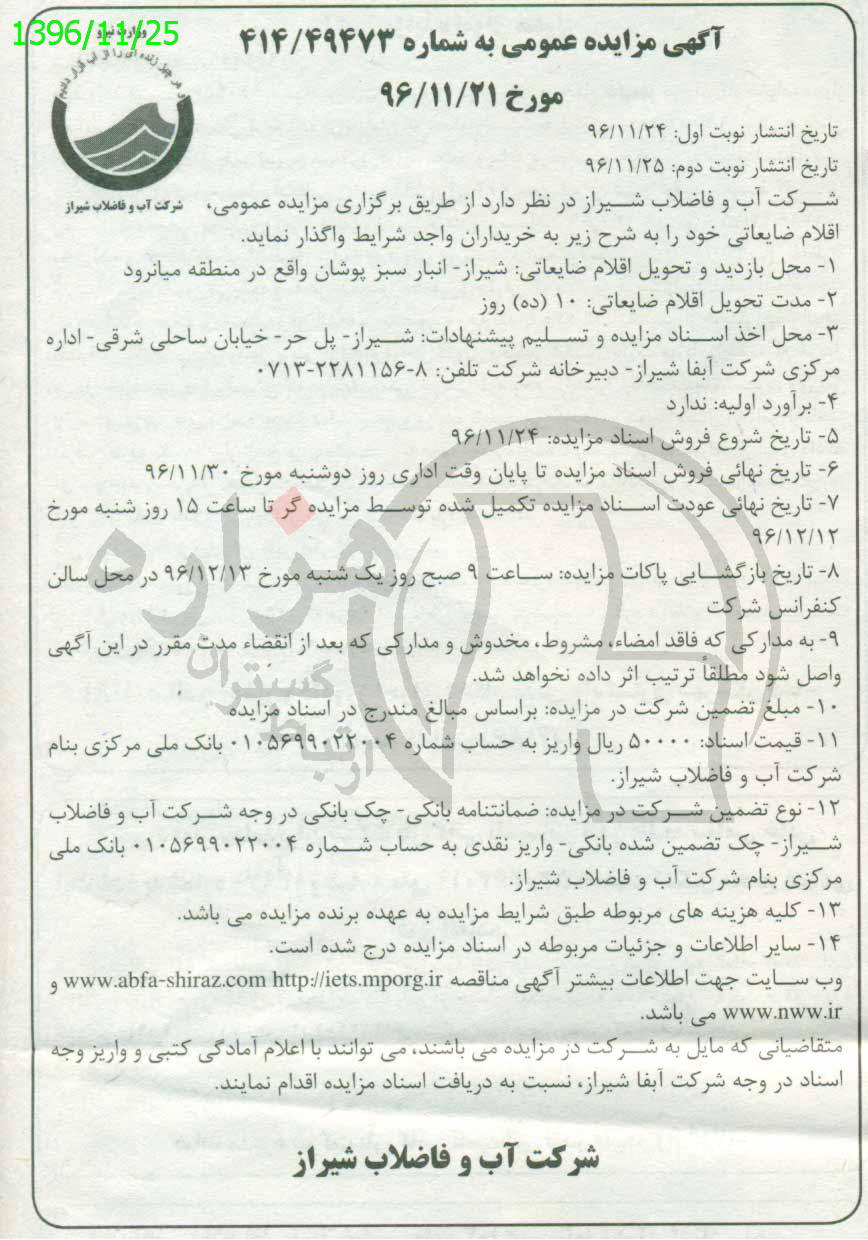 1396/11/25
وزارت نیرو
شرکت آب و فاضلاب شیراز
آگهی مزایده عمومی به شماره ۴۱۴/۴۹۴۷۳
مورخ ۹۶/۱۱/۲۱
تاریخ انتشار نوبت اول: ۹۶/۱۱/۲۴
تاریخ انتشار نوبت دوم: ۹۶/۱۱/۲۵
شرکت آب و فاضلاب شیراز در نظر دارد از طریق برگزاری مزایده عمومی،
اقلام ضایعاتی خود را به شرح زیر به خریداران واجد شرایط واگذار نماید.
۱- محل بازدید و تحویل اقلام ضایعاتی: شیراز- انبار سبز پوشان واقع در منطقه میانرود
۲- مدت تحویل اقلام ضایعاتی: ۱۰ (ده) روز
۳- محل اخذ اسناد مزایده و تسلیم پیشنهادات: شیراز- پل حر- خیابان ساحلی شرقی- اداره
مرکزی شرکت آبفا شیراز- دبیرخانه شرکت تلفن: ۸-۲۲۸۱۱۵۶-۰۷۱۳
۴- برآورد اولیه: ندارد
۵- تاریخ شروع فروش اسناد مزایده: ۹۶/۱۱/۲۴
۶- تاریخ نهائی فروش اسناد مزایده تا پایان وقت اداری روز دوشنبه مورخ ۹۶/۱۱/۳۰
۷- تاریخ نهائی عودت اسناد مزایده تکمیل شده توسط مزایده گر تا ساعت ۱۵ روز شنبه مورخ
۹۶/۱۲/۱۲
۸- تاریخ بازگشایی پاکات مزایده: ساعت ۹ صبح روز یک شنبه مورخ ۹۶/۱۲/۱۳ در محل سالن
کنفرانس شرکت
۹- به مدارکی که فاقد امضاء، مشروط، مخدوش و مدارکی که بعد از انقضاء مدت مقرر در این آگهی
واصل شود مطلقاً ترتیب اثر داده نخواهد شد.
۱۰- مبلغ تضمین شرکت در مزایده: براساس مبالغ مندرج در اسناد مزایده
۱۱- قیمت اسناد: ۵۰۰۰۰ ریال واریز به حساب شماره ۰۱۰۵۶۹۹۰۲۲۰۰۴ بانک ملی مرکزی بنام
شرکت آب و فاضلاب شیراز.
۱۲- نوع تضمین شرکت در مزایده: ضمانتنامه بانکی- چک بانکی در وجه شرکت آب و فاضلاب
شیراز- چک تضمین شده بانکی- واریز نقدی به حساب شماره ۰۱۰۵۶۹۹۰۲۲۰۰۴ بانک ملی
مرکزی بنام شرکت آب و فاضلاب شیراز.
۱۳- کلیه هزینه های مربوطه طبق شرایط مزایده به عهده برنده مزایده می باشد.
۱۴- سایر اطلاعات و جزئیات مربوطه در اسناد مزایده درج شده است.
وب سایت جهت اطلاعات بیشتر آگهی مناقصه www.abfa-shiraz.com http://iets.mporg.ir و
www.nww.ir می باشد.
متقاضیانی که مایل به شرکت در مزایده می باشند، می توانند با اعلام آمادگی کتبی و واریز وجه
اسناد در وجه شرکت آبفا شیراز، نسبت به دریافت اسناد مزایده اقدام نمایند.
شرکت آب و فاضلاب شیراز
هزاره